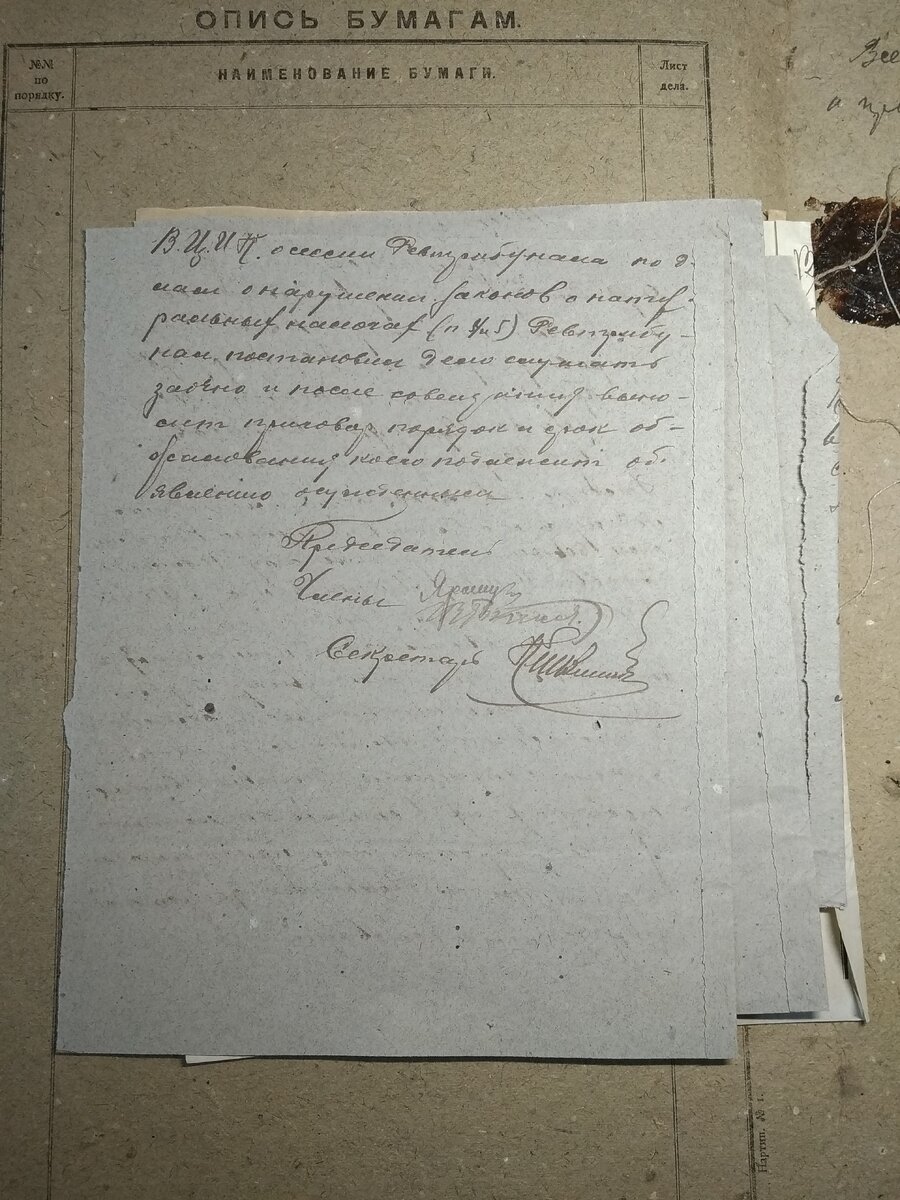 ОПИСЬ БУМАГАМ.
№№ по порядку.
НАИМЕНОВАНИЕ БУМАГИ.
Лист дела.
Все
а
В.Ц.И.К. о сессии Ревтрибунала по д-
елам о нарушении законов о нату-
ральных налогах (п 4 и 5) Ревтрибу-
нал постановил дело слушать
заочно и после совещания выно-
сит приговор порядок и срок об-
жалования коего подлежит об-
явлению осужденным
Председатель
Члены
Секретарь
Картин. № 1.